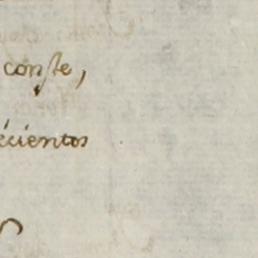 conste,
écientos